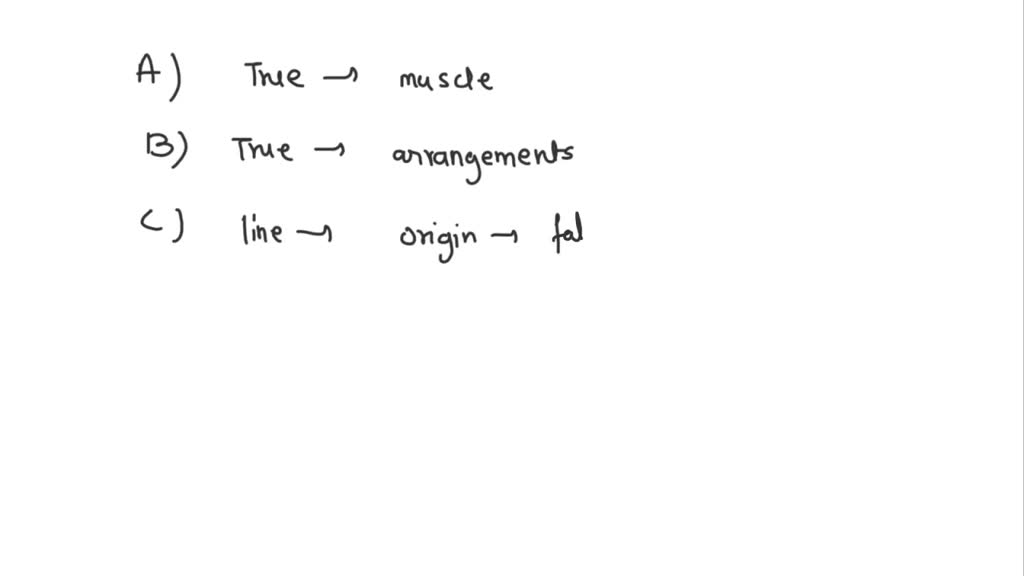 A) True → muscle
B) True → arrangements
C) line → origin → fal